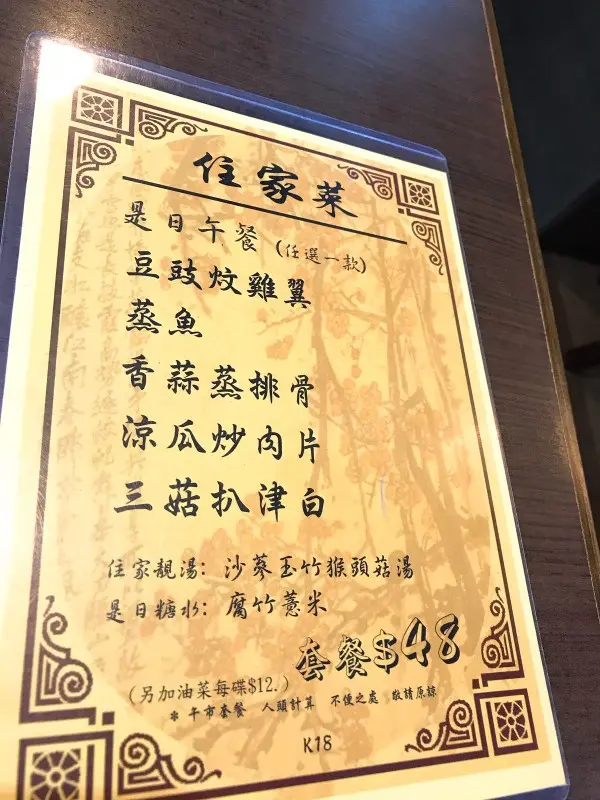 住家菜
是日午餐 (任選一款)
豆豉炆雞翼
蒸魚
香蒜蒸排骨
涼瓜炒肉片
三菇扒津白
住家靚湯: 沙蔘玉竹猴頭菇湯
是日糖水: 腐竹薏米
套餐$48
(另加油菜每碟$12.)
* 午市套餐 人頭計算 不便之處 敬請原諒
K18